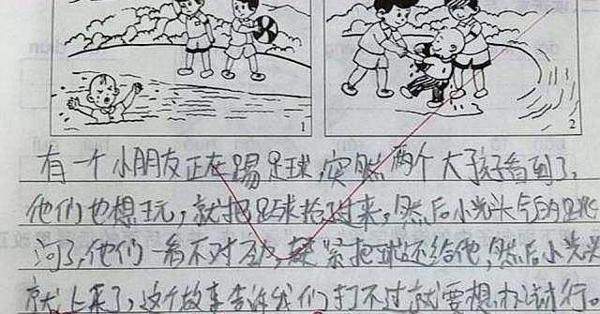 1
2
有一个小朋友正在踢足球,突然两个大孩子看到了,
他们也想玩,就把足球抢过来,然后小光头气的跳
河了,他们一看不对劲,赶紧把球还给他,然后小光头
就上来了,这个故事告诉我们打不过就要想办法才行。